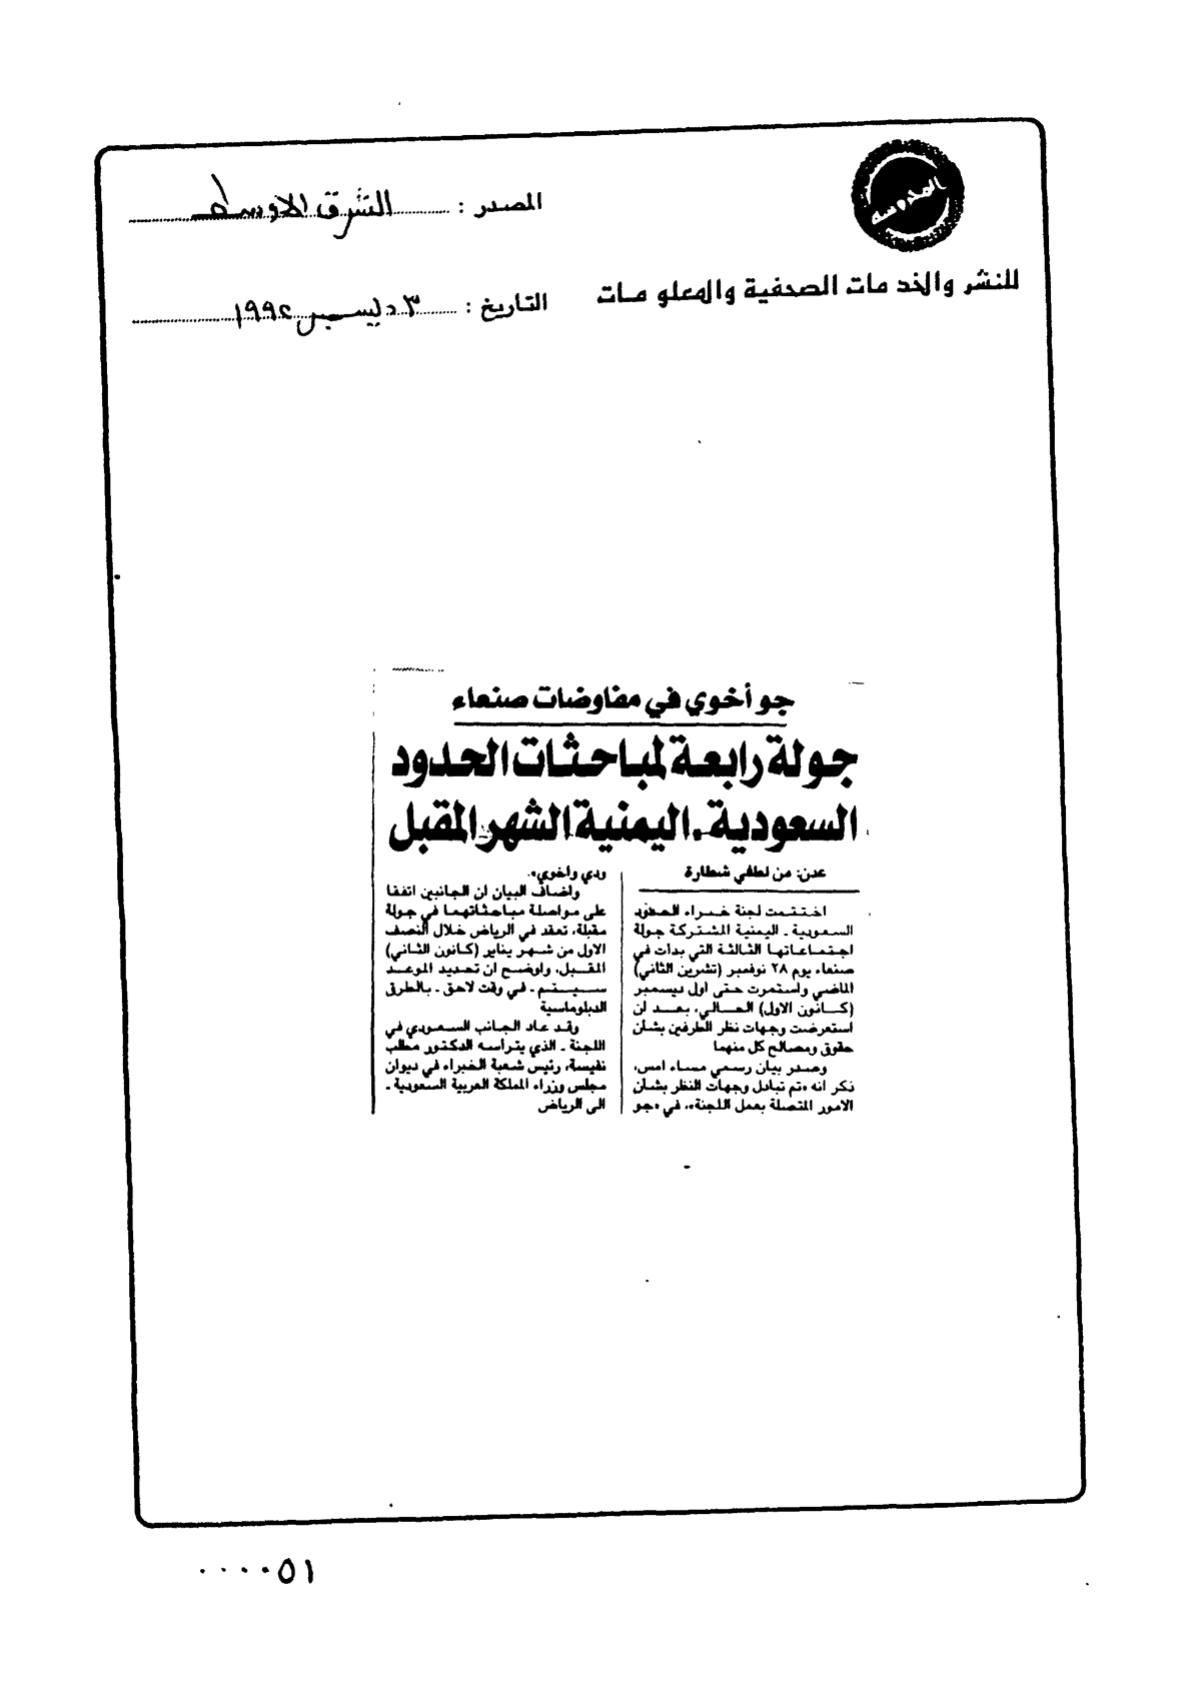 المصدر : الشرق الاوسط
للنشر والخدمات الصحفية والمعلومات
التاريخ : ٣ ديسمبر ١٩٩٢
جو أخوي في مفاوضات صنعاء
جولة رابعة لمباحثات الحدود
السعودية ـ اليمنية الشهر المقبل
عدن: من لطفي شطارة
اختتمت لجنة خبراء الحدود
السعودية ـ اليمنية المشتركة جولة
اجتماعاتها الثالثة التي بدات في
صنعاء يوم ٢٨ نوفمبر (تشرين الثاني)
الماضي واستمرت حتى اول ديسمبر
(كانون الاول) الحالي، بعد ان
استعرضت وجهات نظر الطرفين بشان
حقوق ومصالح كل منهما
وصدر بيان رسمي مساء امس،
ذكر انه «تم تبادل وجهات النظر بشان
الامور المتصلة بعمل اللجنة»، في «جو
ودي واخوي».
واضاف البيان ان الجانبين اتفقا
على مواصلة مباحثاتهما في جولة
مقبلة، تعقد في الرياض خلال النصف
الاول من شهر يناير (كانون الثاني)
المقبل، واوضح ان تحديد الموعد
سيتم ـ في وقت لاحق ـ بالطرق
الدبلوماسية
وقد عاد الجانب السعودي في
اللجنة ـ الذي يتراسه الدكتور مطلب
نفيسة، رئيس شعبة الخبراء في ديوان
مجلس وزراء المملكة العربية السعودية ـ
الى الرياض
٠٠٠٠٥١